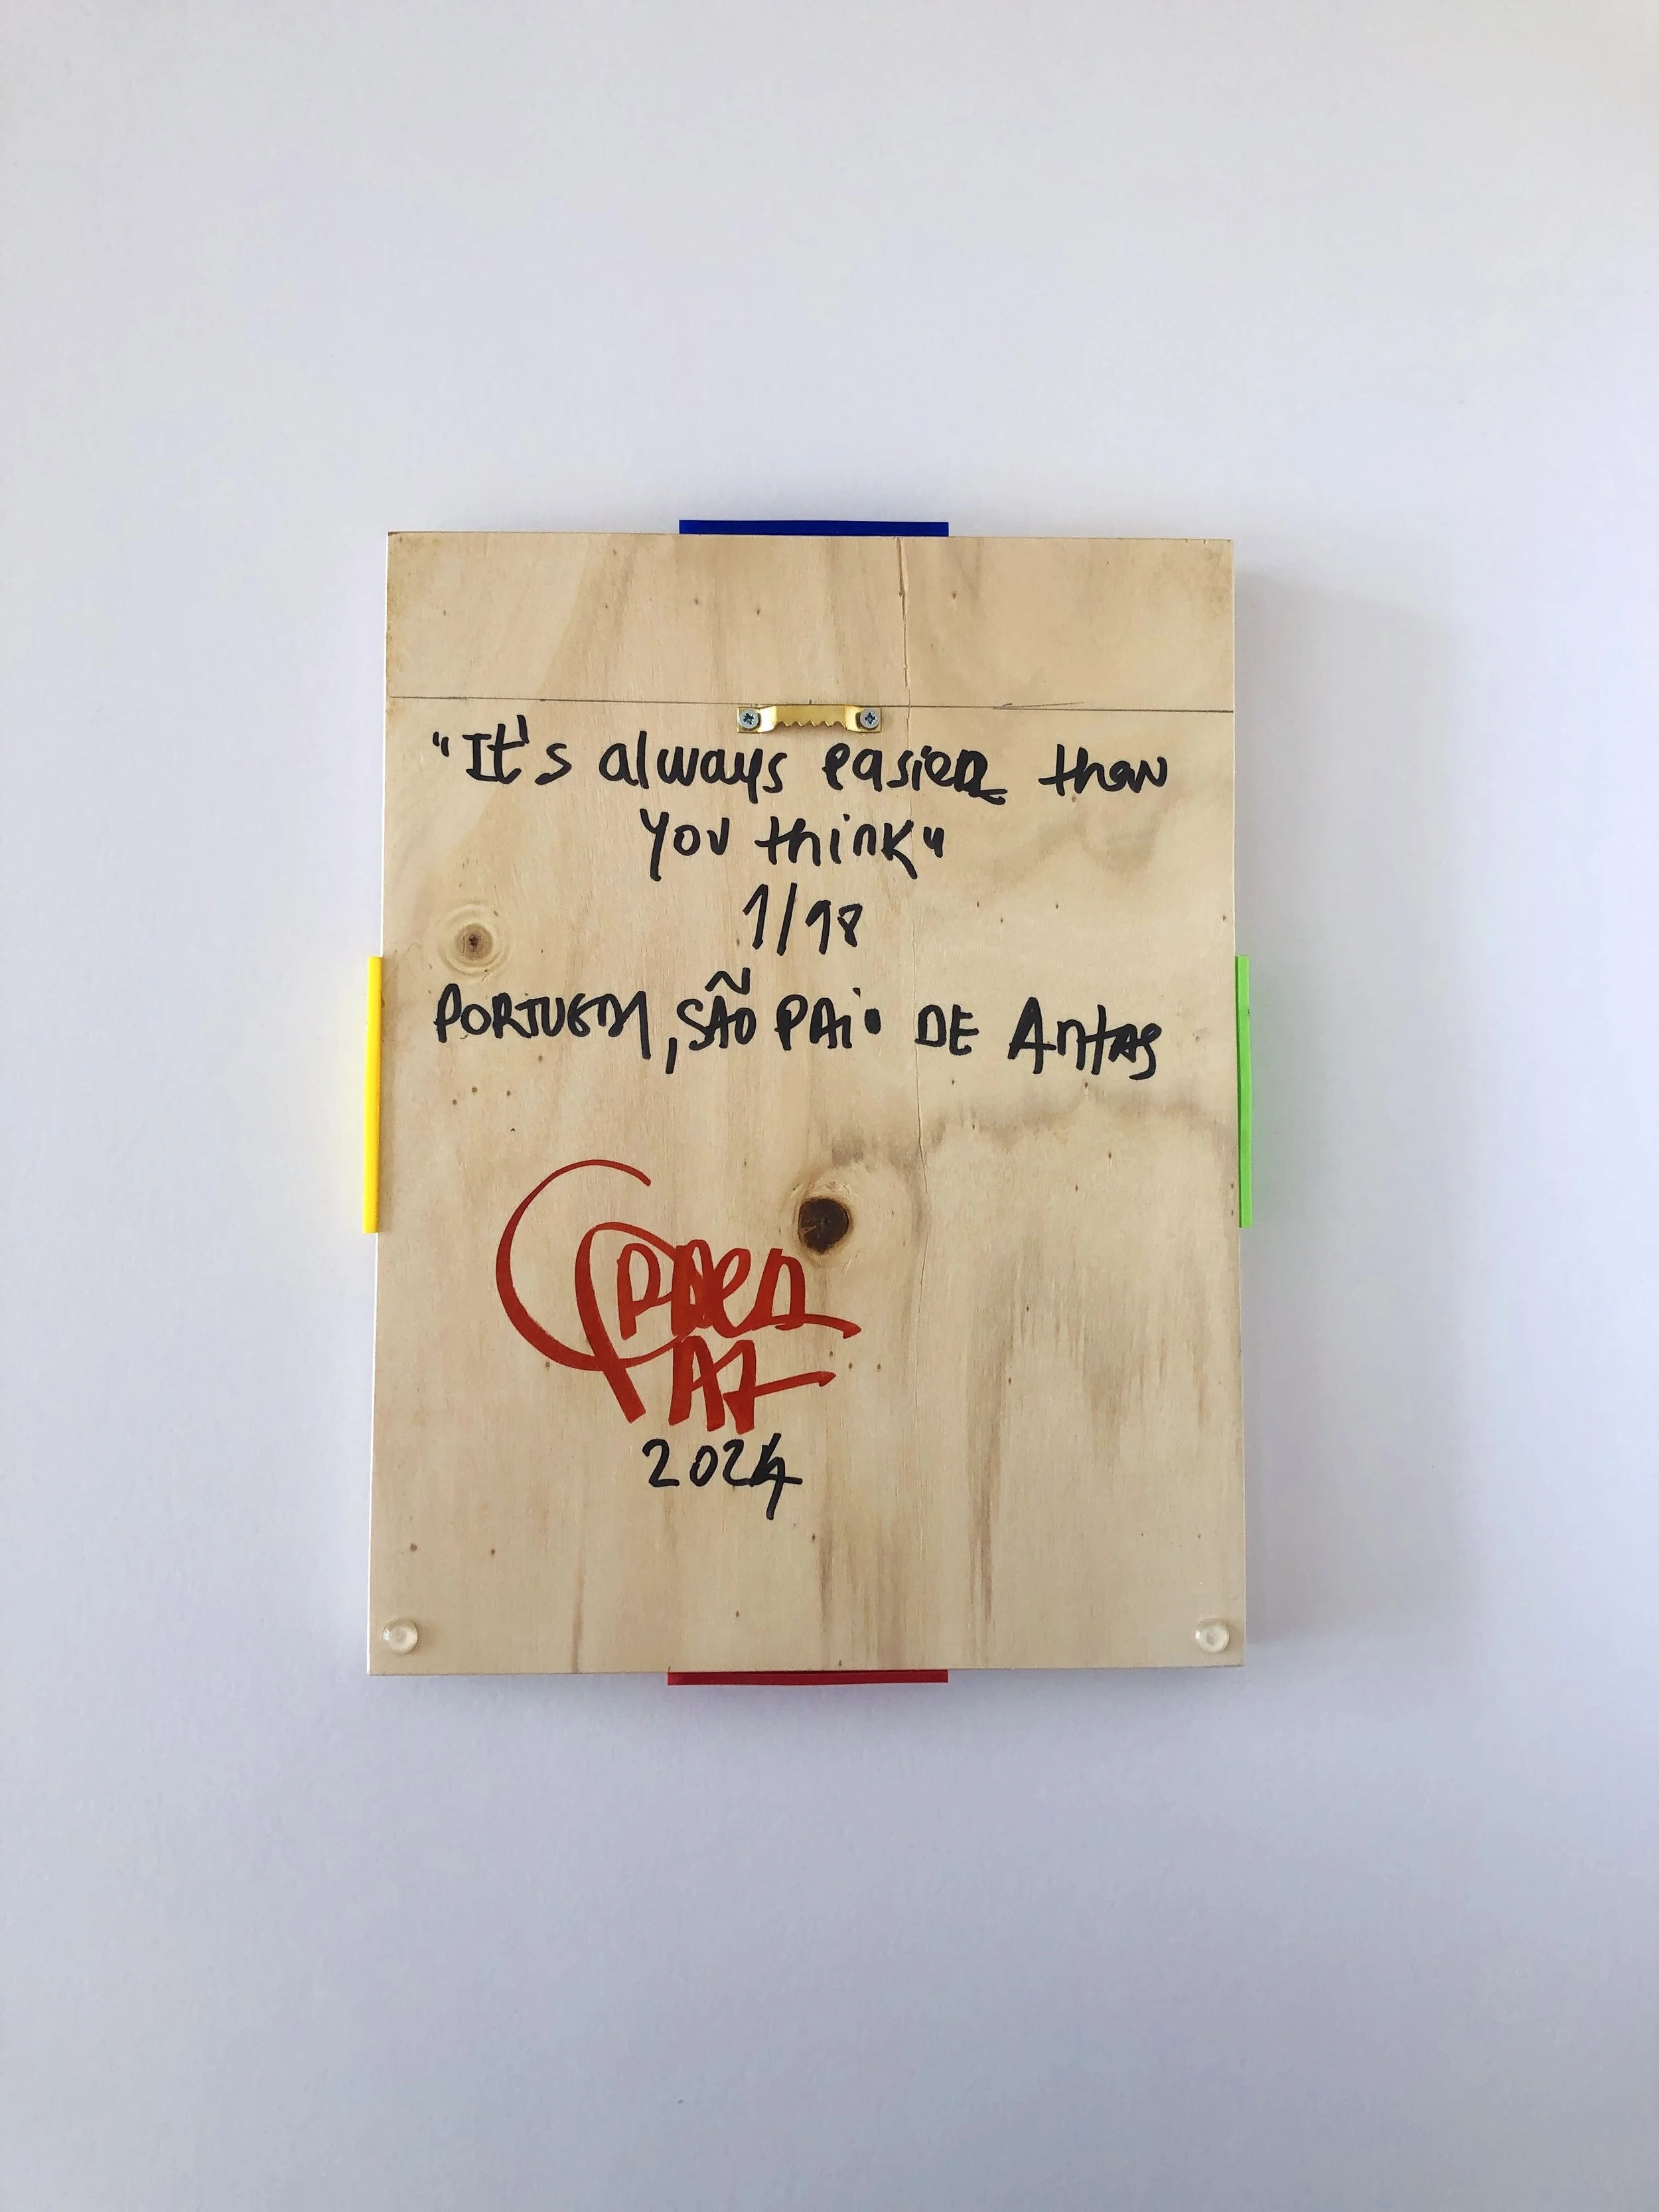 "It's always easier than
you think"
1/98
PORTUGAL, SÃO PAIO DE Antas
2024